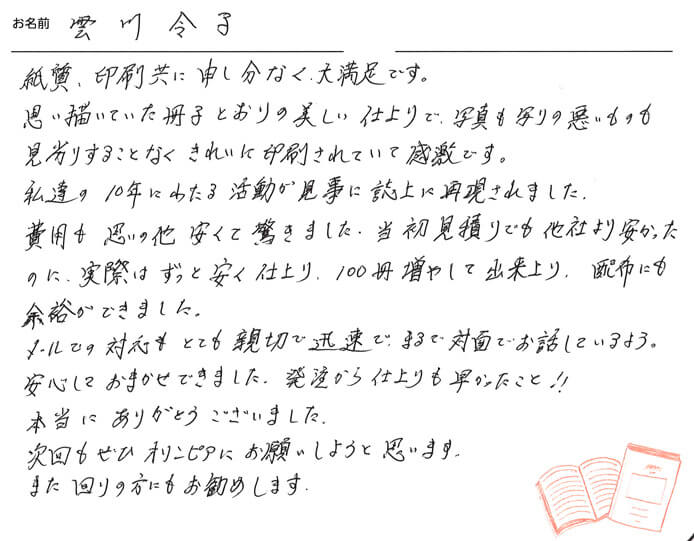 お名前 雲川令子
紙質、印刷共に申し分なく、大満足です。
思い描いていた冊子とおりの美しい仕上りで、写真も写りの悪いものも
見劣りすることなくきれいに印刷されていて感激です。
私達の10年にわたる活動が見事に誌上に再現されました。
費用も思いの他安くて驚きました。当初見積りでも他社より安かった
のに、実際はずっと安く仕上り、100冊増やして出来上り、配布にも
余裕ができました。
メールでの対応もとても親切で迅速で、まるで対面でお話しているよう。
安心しておまかせできました。発注から仕上りも早かったこと!!
本当にありがとうございました。
次回もぜひオリンピアにお願いしようと思います。
また回りの方にもお勧めします。